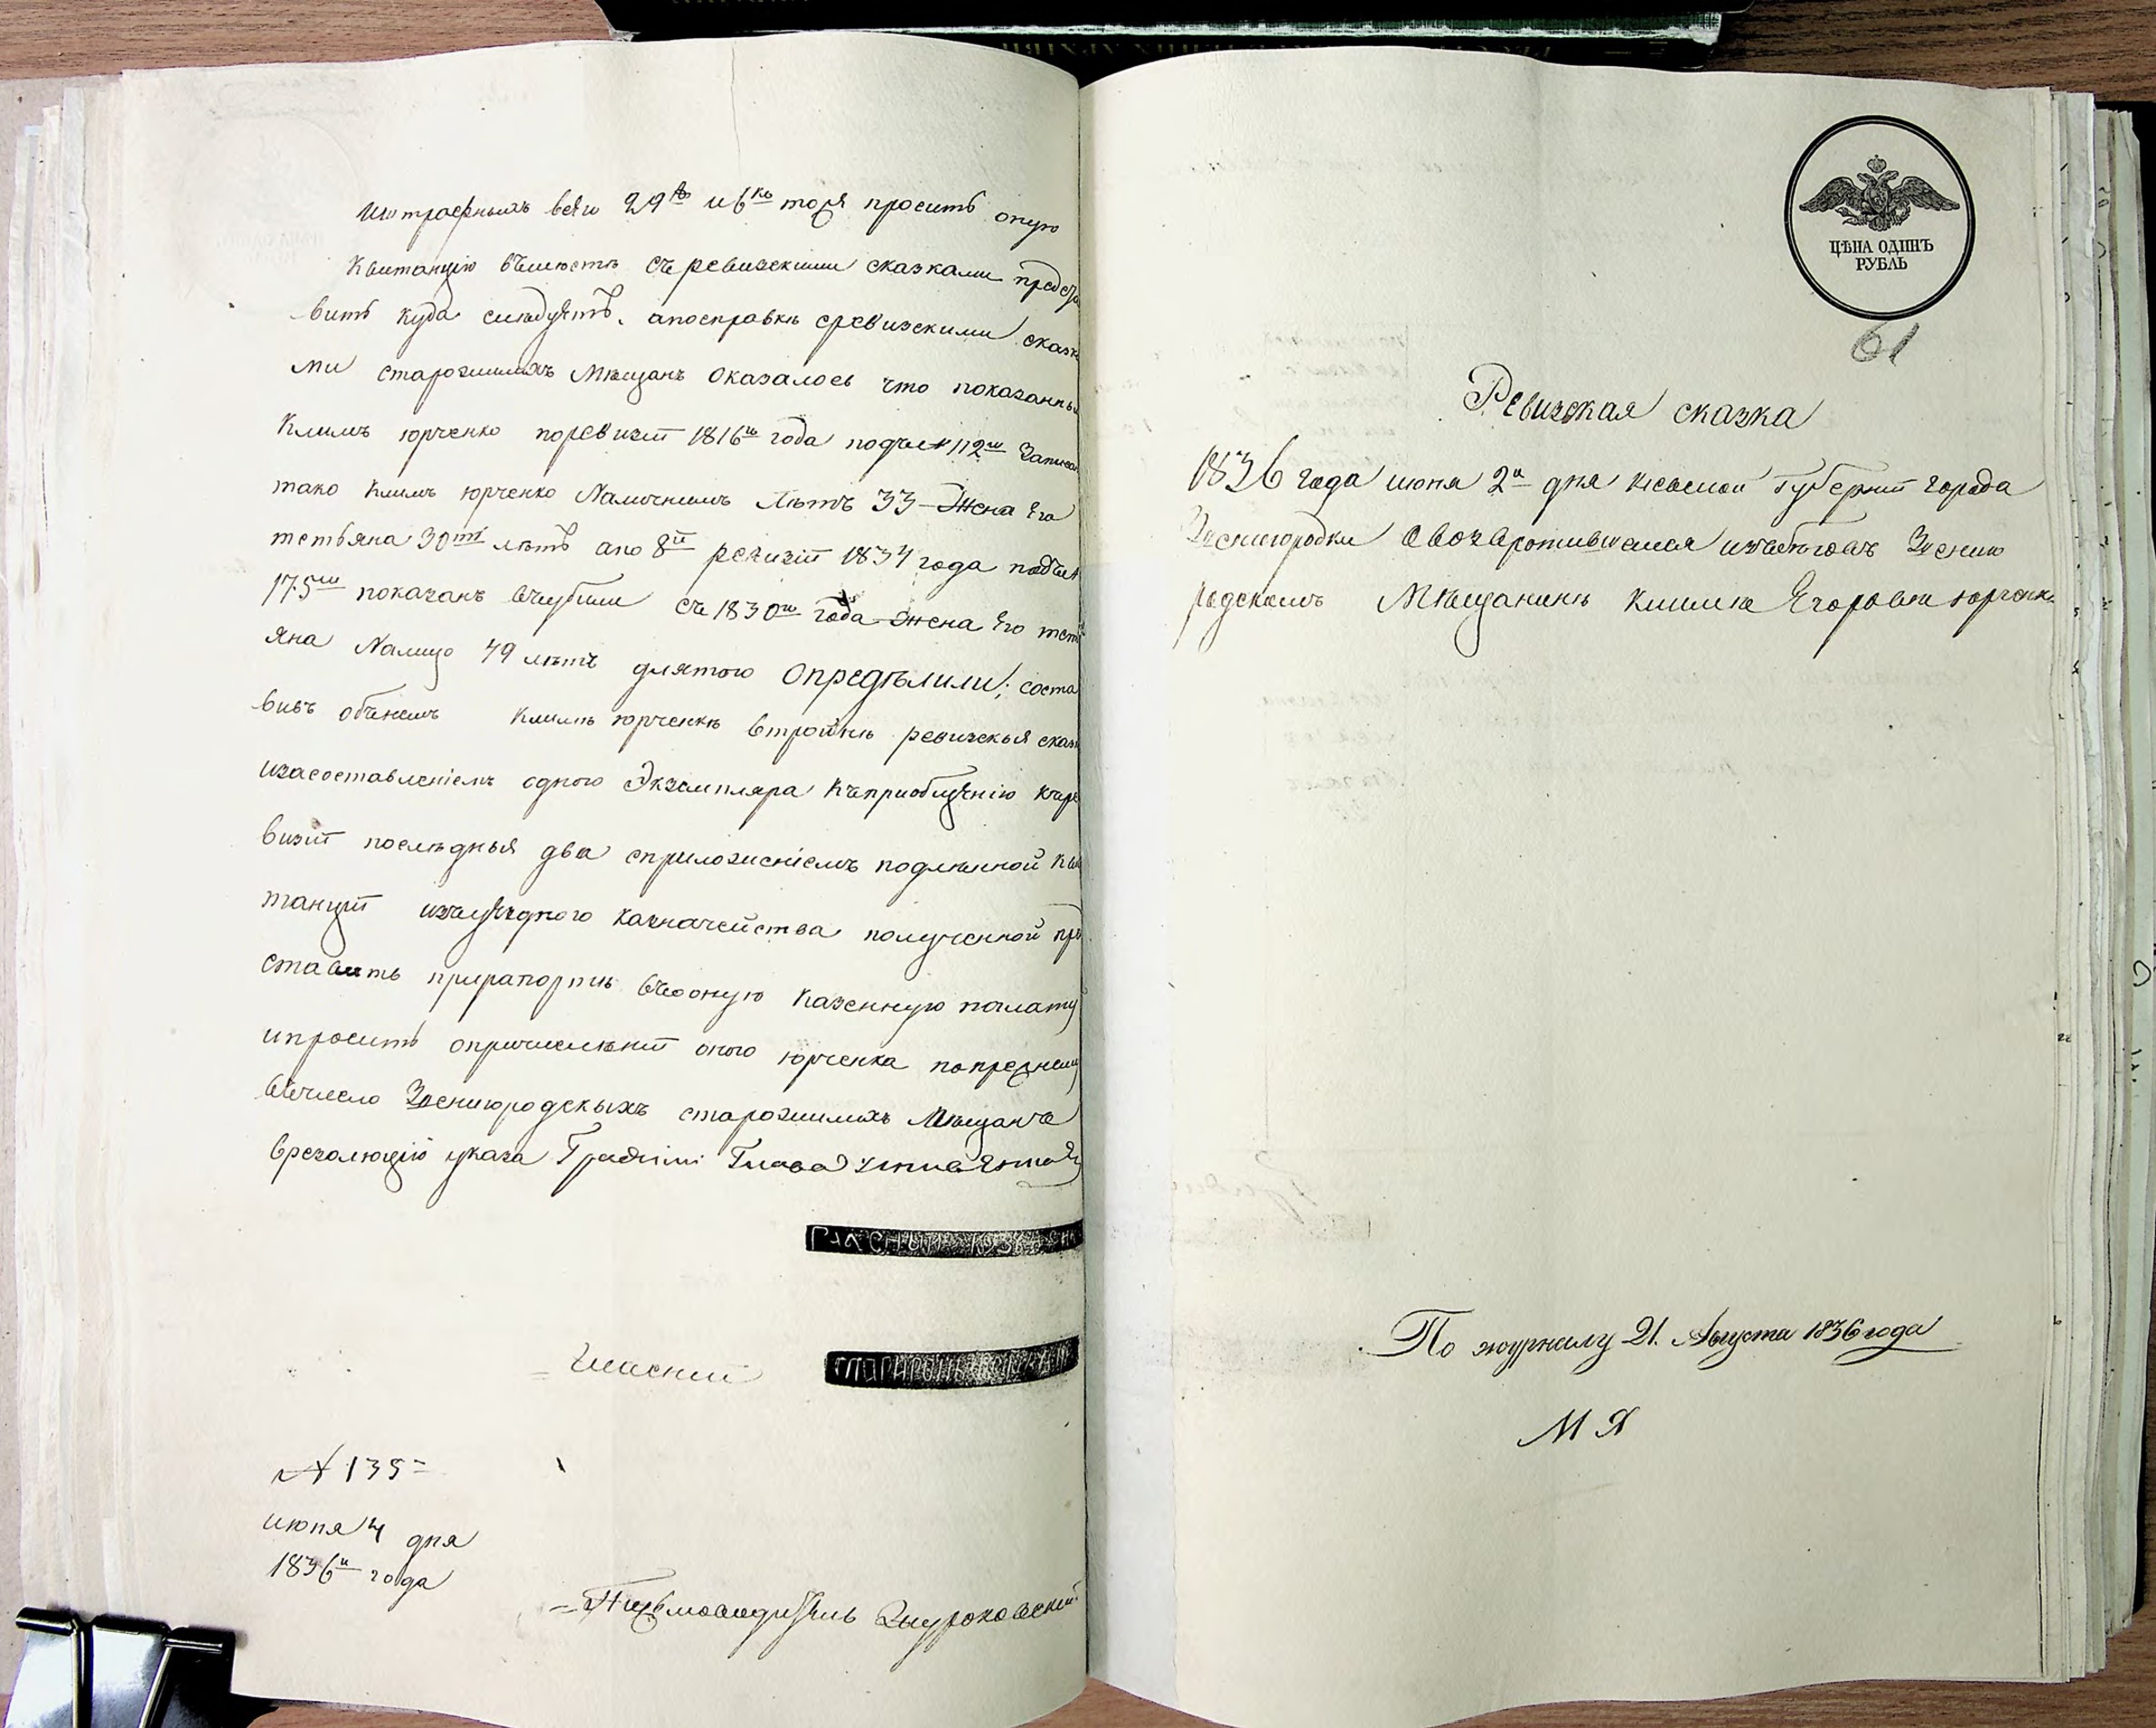 штрафныхъ всего 29 и 6 коп. просить оную
квитанцію вместе съ ревизскими сказками предста
вить куда следуетъ, а по справке с ревизскими сказка
ми старожилыхъ Мещанъ оказалось что показанный
Климъ Юрченко по ревизіи 1816го года подъ № 112м записан
тако Климъ Юрченко Налычнымъ летъ 33 Жена его
тетьяна 30ти летъ а по 8й ревизіи 1834 года подъ №
175м показанъ въ убыли съ 1830го года Жена его теть
яна Налицо 49 летъ для того Определили; соста
вивъ объ немъ Климе Юрченке втройне ревизскыя сказки
и за составленіемъ одного Экземпляра къ пріобщенію къ ре
визіи последныя два с приложеніемъ подленной кви
танціи изъ уезднаго казначейства полученной пред
ставить при рапорте въ Кіевскую казенную палату
и просить о причисленіи оного Юрченка по прежнему
въ число Звенигородскыхъ старожилыхъ Мещанъ
в резолюцію указа Градскій Глава
ГЛАСНЫЙ
Гласный
№ 135
июня 4 дня
1836го года
Письмоводитель
ЦѢНА ОДИНЪ
РУБЛЬ
61
Ревизская сказка
1836 года июня 2го дня Кіевской Губерніи города
Звенигородки о возвротившемся изъ бѣговъ Звениго
родскомъ Мѣщанинѣ Климѣ Егоровѣ Юрченкѣ
По журналу 21. Августа 1836 года
М Я